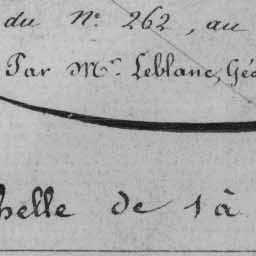 du Nº 262, au
Par Mr. Leblanc, Gé
helle de 1 à